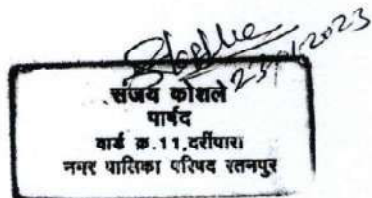 संजय कोशले
पार्षद
वार्ड क्र.11,दर्रीपारा
नगर पालिका परिषद रतनपुर